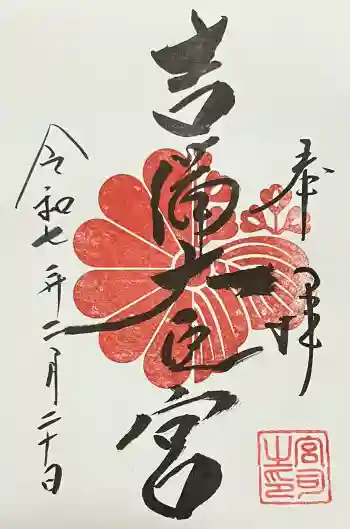 奉拝
吉備大臣宮
令和七年二月二十日
宮司
之印